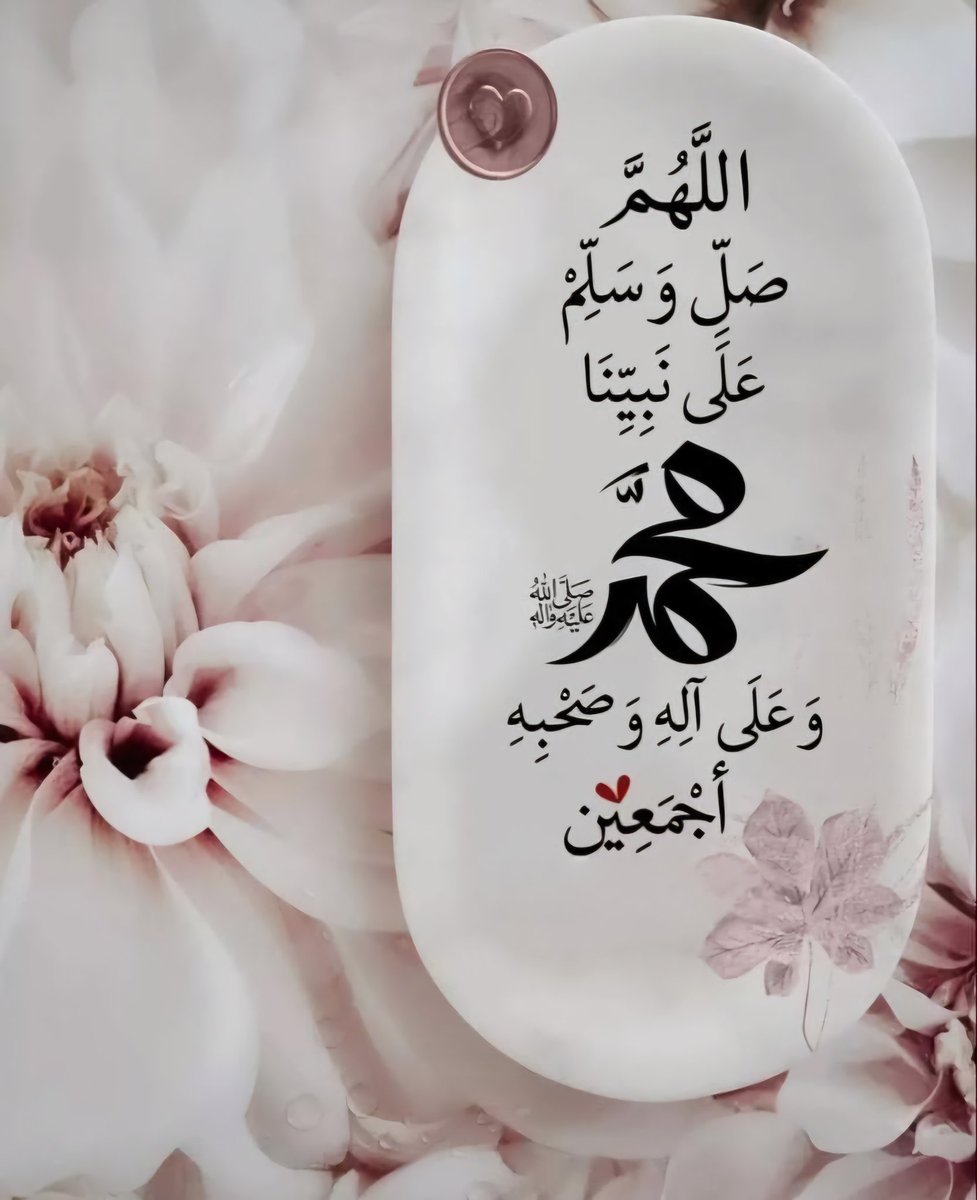 اللَّهُمَّ
صَلِّ وَسَلِّمْ
عَلَى نَبِيِّنَا
مُحَمَّد
صَلَّى اللهُ
عَلَيْهِ وَآلِهِ
وَعَلَى آلِهِ وَصَحْبِهِ
أجْمَعِين